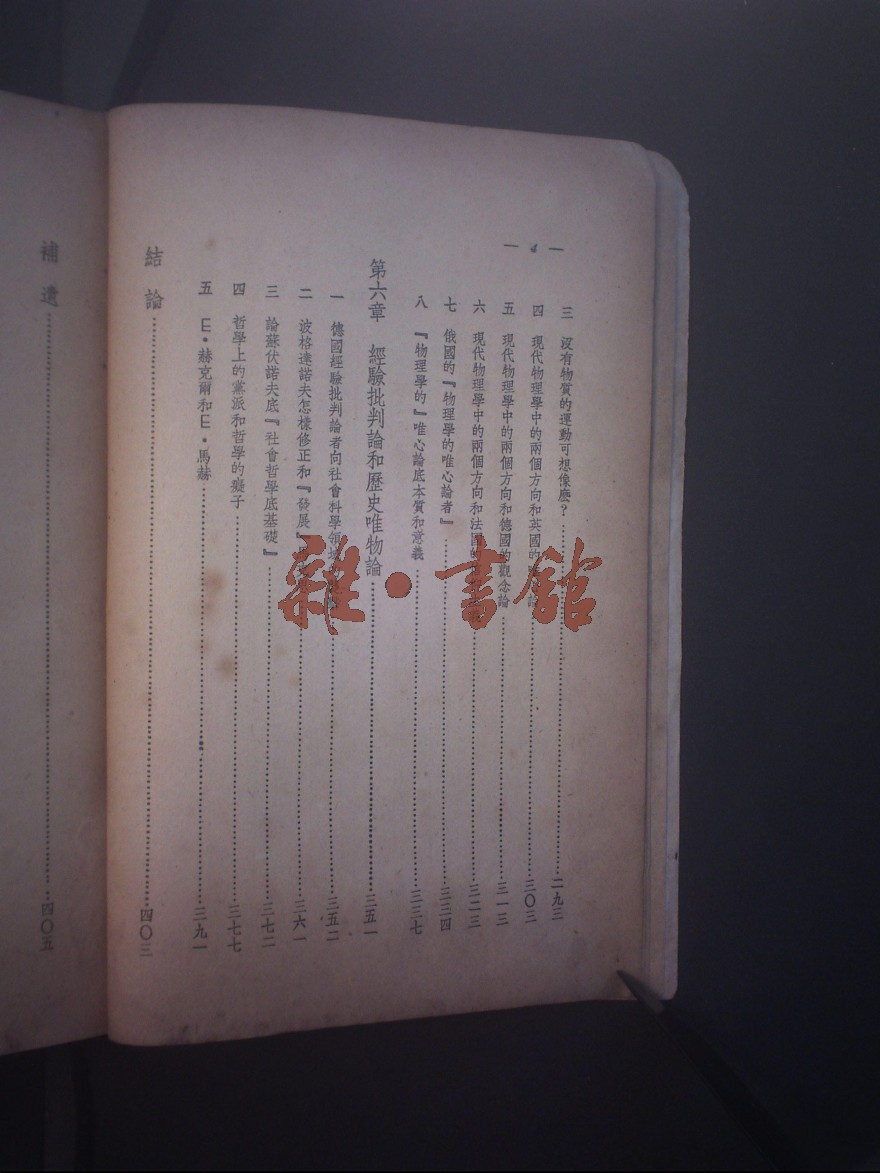 三 沒有物質的運動可想像麽？……二九三
四 現代物理學中的兩個方向和英國的……三〇三
五 現代物理學中的兩個方向和德國的觀念論……三一三
六 現代物理學中的兩個方向和法國的……三二三
七 俄國的『物理學的唯心論者』……三三四
八 『物理學的』唯心論底本質和意義……三三七
第六章 經驗批判論和歷史唯物論……三五一
一 德國經驗批判論者向社會科學領域……三五二
二 波格達諾夫怎樣修正和『發展』……三六一
三 論蘇伏諾夫底『社會哲學底基礎』……三七二
四 哲學上的黨派和哲學的癡子……三七七
五 E·赫克爾和E·馬赫……三九一
結論……四〇三
補遺……四〇五
雜·書館